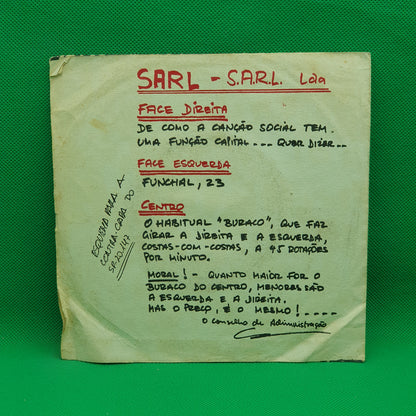 SARL - S.A.R.L. Lda
FACE DIREITA
DE COMO A CANÇÃO SOCIAL TEM
UMA FUNÇÃO CAPITAL --- QUER DIZER--
FACE ESQUERDA
FUNCHAL, 23
CENTRO
O HABITUAL "BURACO", QUE FAZ
GIRAR A DIREITA E A ESQUERDA,
COSTAS-COM-COSTAS, A 45 ROTAÇÕES
POR MINUTO.
MORAL! - QUANTO MAIOR FOR O
BURACO DO CENTRO, MENORES SÃO
A ESQUERDA E A DIREITA.
MAS O PREÇO, É O MESMO! ----
O Conselho de Administração
ESQUEMA PARA A
CONTRA-CAPA DO